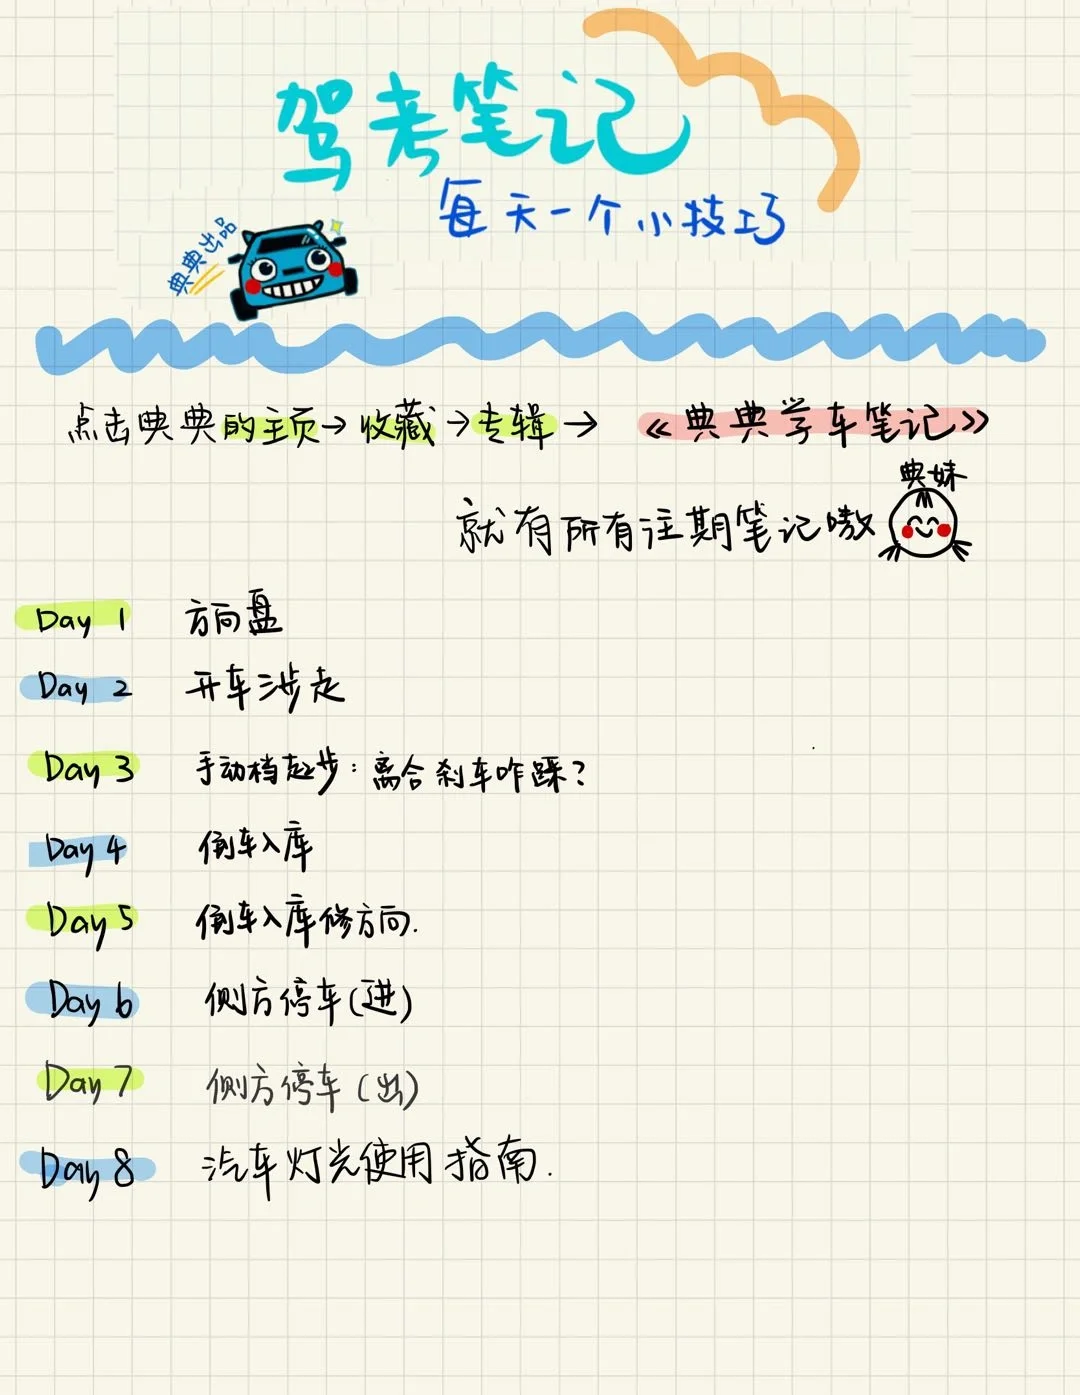 驾考笔记
每天一个小技巧
典典出品
点击典典的主页→收藏→专辑→《典典学车笔记》
典妹
就有所有往期笔记嗷
Day 1 方向盘
Day 2 开车涉走
Day 3 手动档起步：离合刹车咋踩？
Day 4 倒车入库
Day 5 倒车入库修方向.
Day 6 侧方停车(进)
Day 7 侧方停车(出)
Day 8 汽车灯光使用指南.